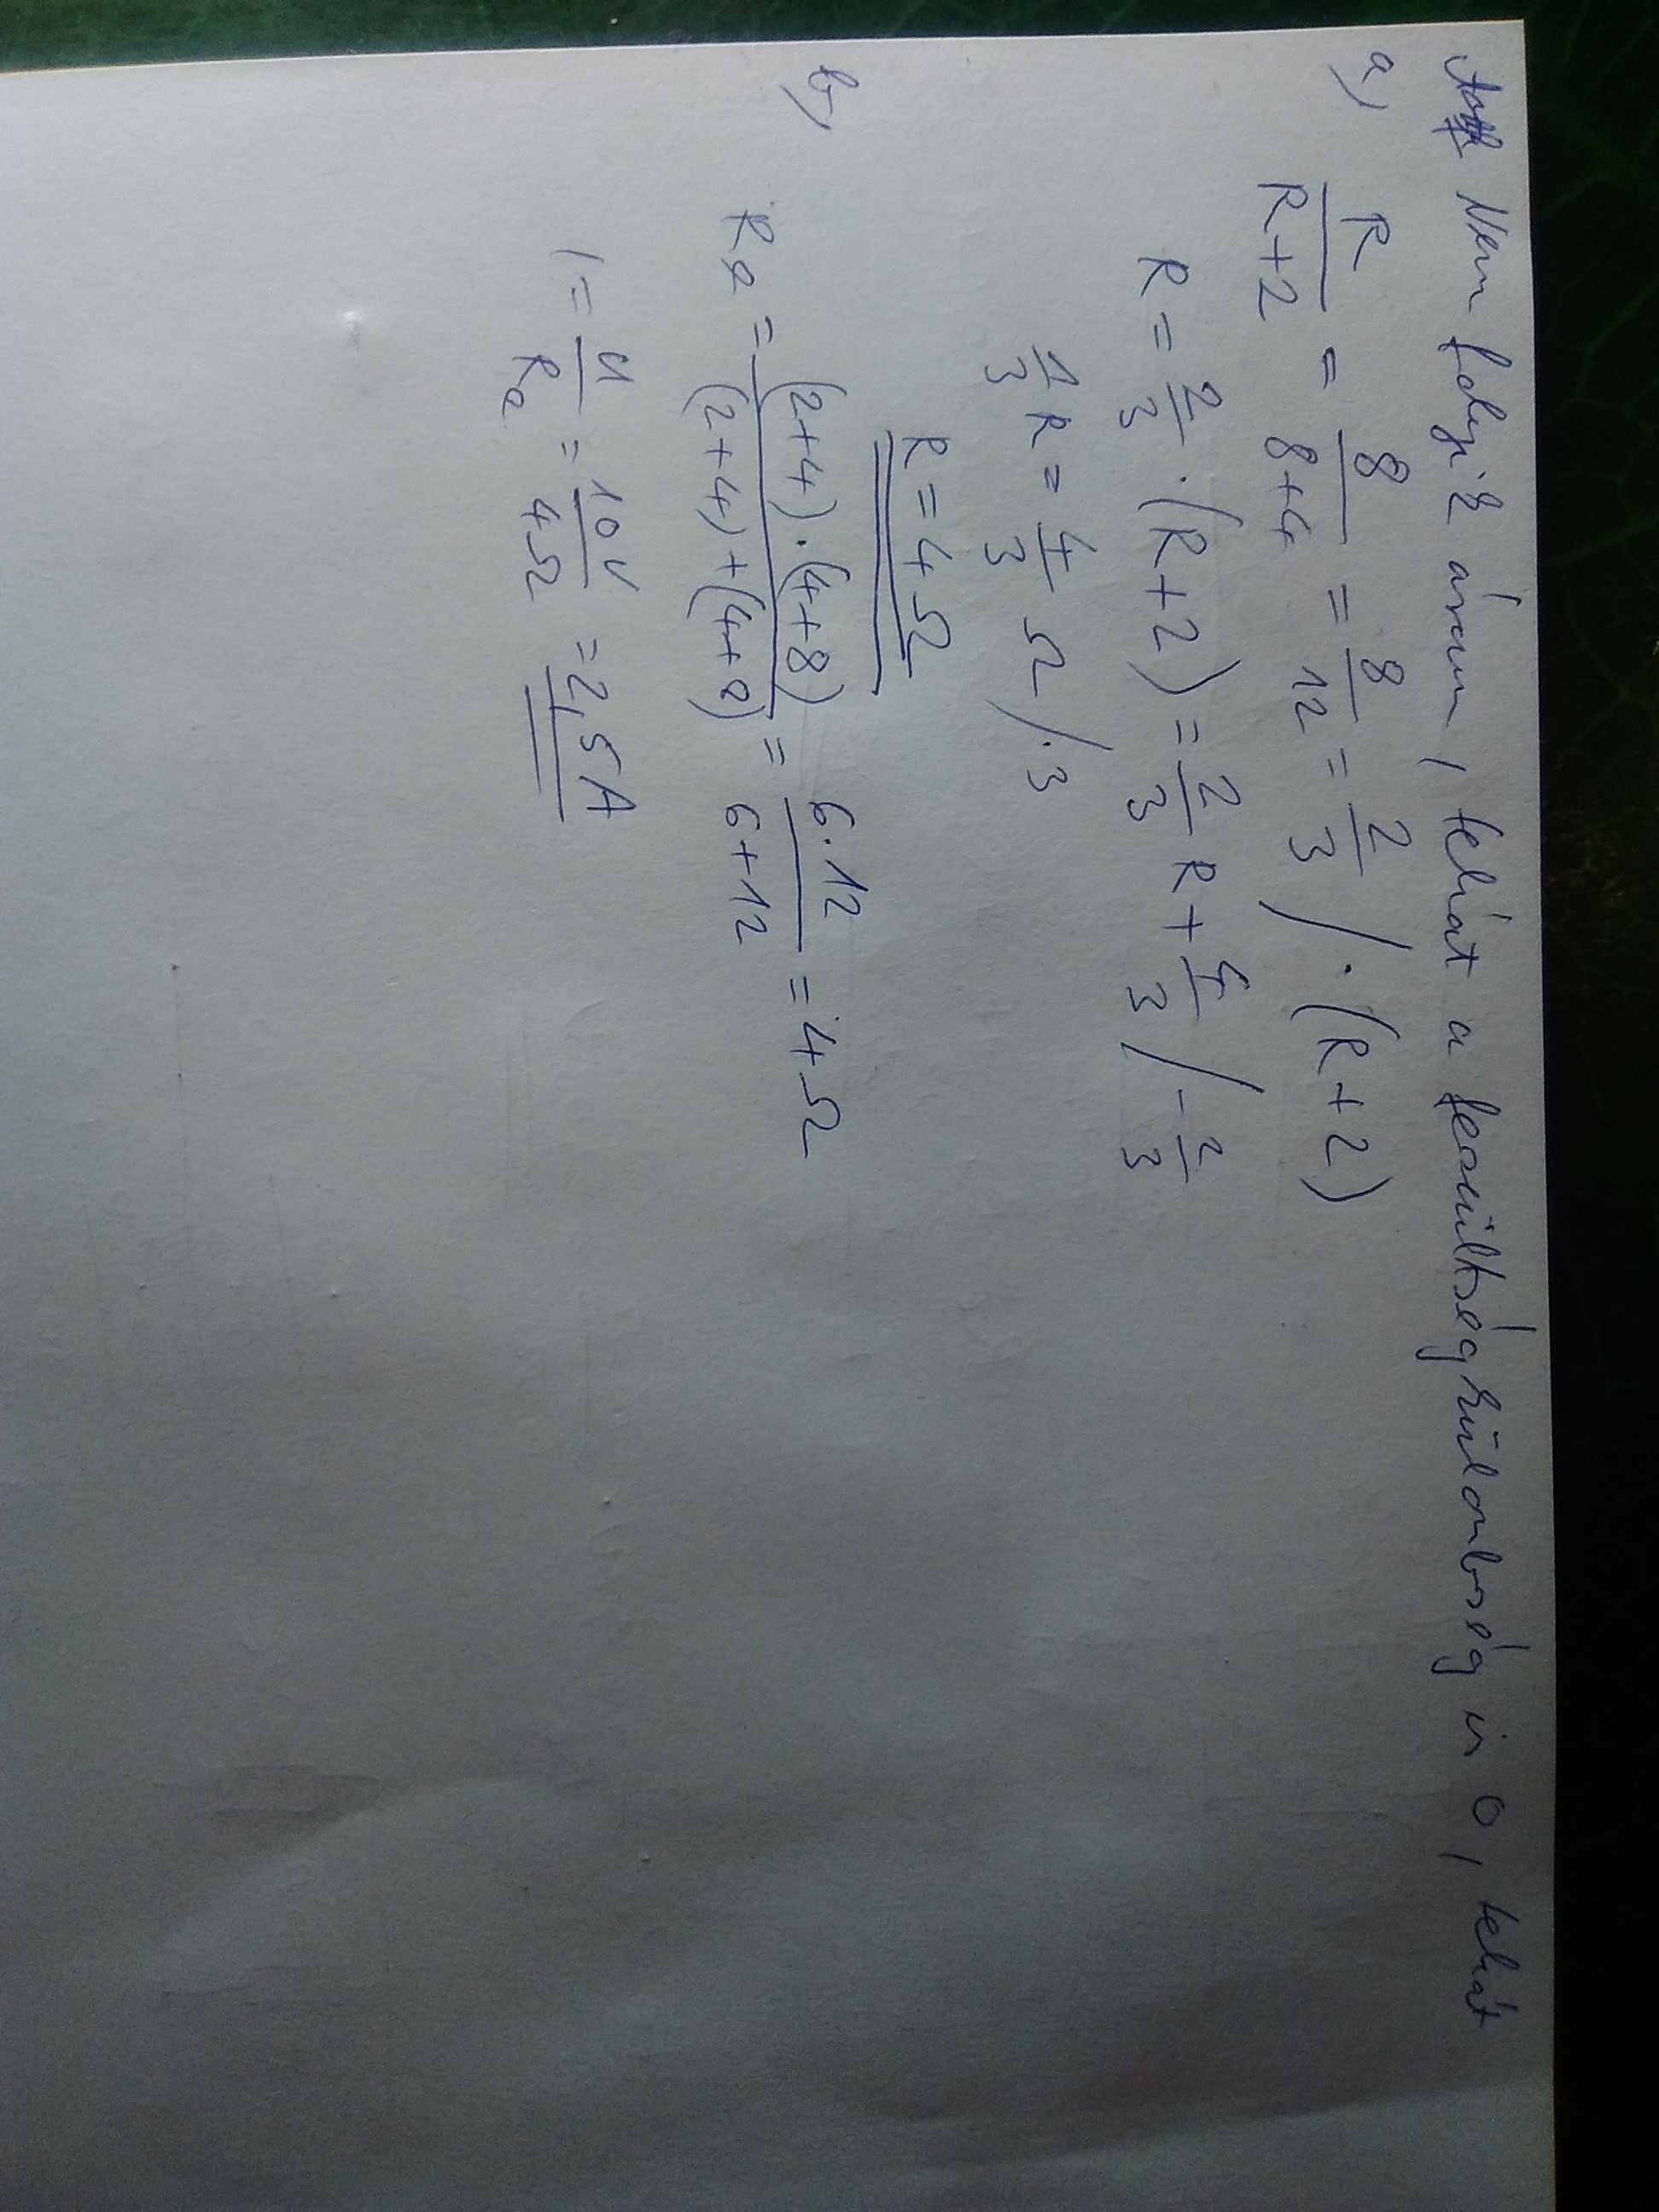 Nem folyik áram, tehát a feszültségkülönbség is 0, tehát
a) R/(R+2) = 8/(8+4) = 8/12 = 2/3 /·(R+2)
R = 2/3 · (R+2) = 2/3 R + 4/3 / - 2/3
1/3 R = 4/3 Ω /·3
R = 4 Ω
b) Re = (2+4)·(4+8)/(2+4)+(4+8) = 6·12/6+12 = 4 Ω
I = U/Re = 10V/4Ω = 2,5 A